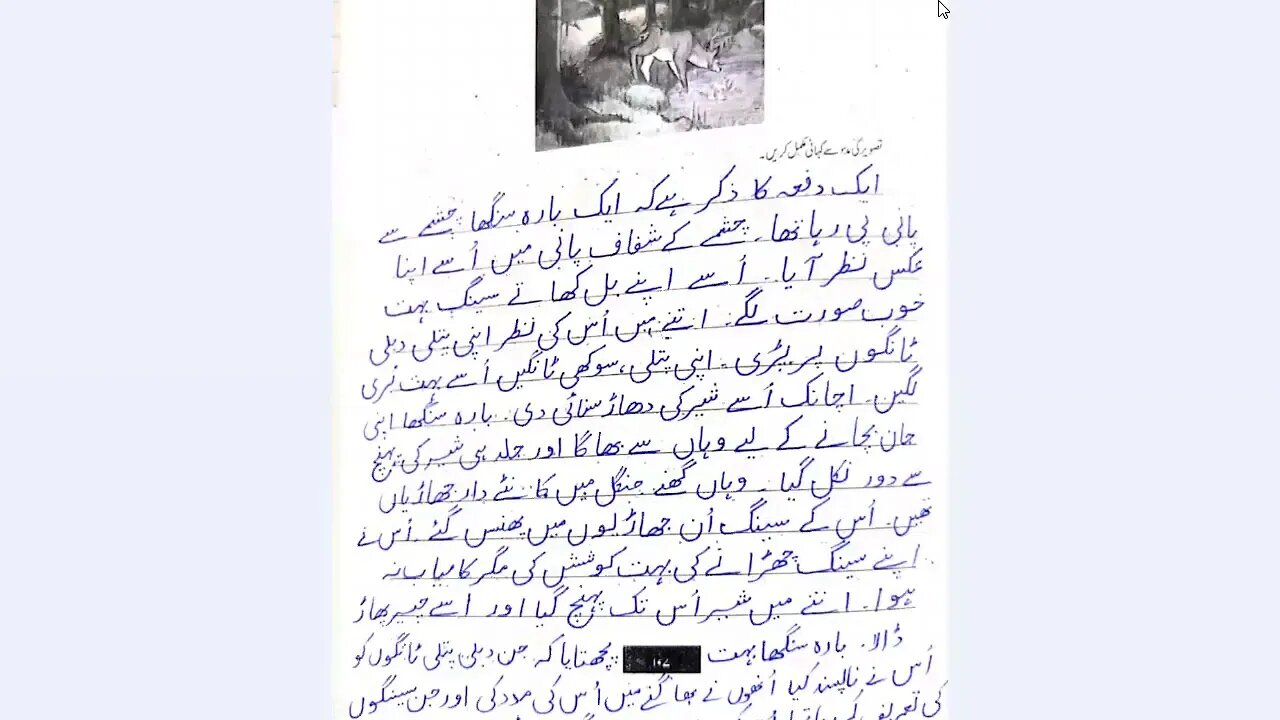 تصویر کی مدد سے کہانی مکمل کریں۔
ایک دفعہ کا ذکر ہے کہ ایک بارہ سنگھا چشمے سے
پانی پی رہا تھا۔ چشمے کے شفاف پانی میں اُسے اپنا
عکس نظر آیا۔ اُسے اپنے بل کھاتے سینگ بہت
خوب صورت لگے۔ اتنے میں اُس کی نظر اپنی پتلی دبلی
ٹانگوں پر پڑی۔ اپنی پتلی، سوکھی ٹانگیں اُسے بہت بُری
لگیں۔ اچانک اُسے شیر کی دھاڑ سنائی دی۔ بارہ سنگھا اپنی
جان بچانے کے لیے وہاں سے بھاگا اور جلد ہی شیر کی پہنچ
سے دور نکل گیا۔ وہاں گھنے جنگل میں کانٹے دار جھاڑیاں
تھیں۔ اُس کے سینگ اُن جھاڑیوں میں پھنس گئے۔ اُس نے
اپنے سینگ چھڑانے کی بہت کوشش کی مگر کامیاب نہ
ہوا۔ اتنے میں شیر اُس تک پہنچ گیا اور اُسے چیر پھاڑ
ڈالا۔ بارہ سنگھا بہت پچھتایا کہ جن دبلی پتلی ٹانگوں کو
اُس نے ناپسند کیا اُنھوں نے بھاگنے میں اُس کی مدد کی اور جن سینگوں
کی تعریف